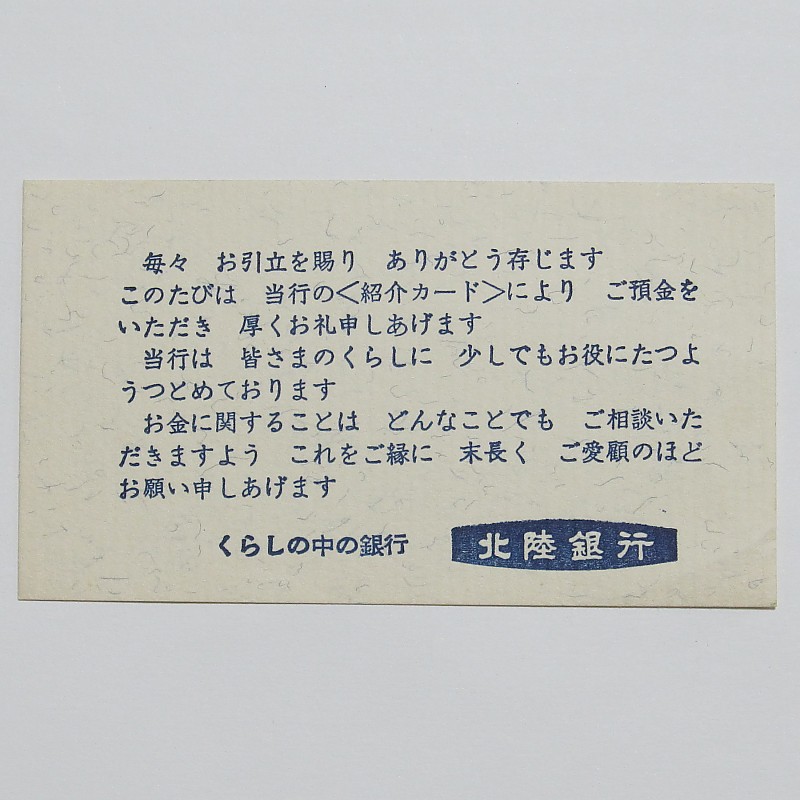 毎々　お引立を賜り　ありがとう存じます
このたびは　当行の<紹介カード>により　ご預金を
いただき　厚くお礼申しあげます
当行は　皆さまのくらしに　少しでもお役にたつよ
うつとめております
お金に関することは　どんなことでも　ご相談いた
だきますよう　これをご縁に　末長く　ご愛顧のほど
お願い申しあげます
くらしの中の銀行　北陸銀行